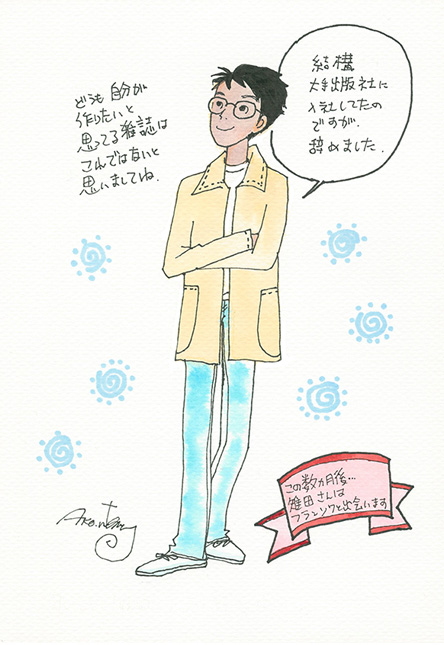 結構
大手出版社に
入社してたの
ですが、
辞めました.
どうも自分が
作りたいと
思ってる雑誌は
こんではないと
思いましてね.
この数カ月後…
雉田さんは
フランソワと出会います